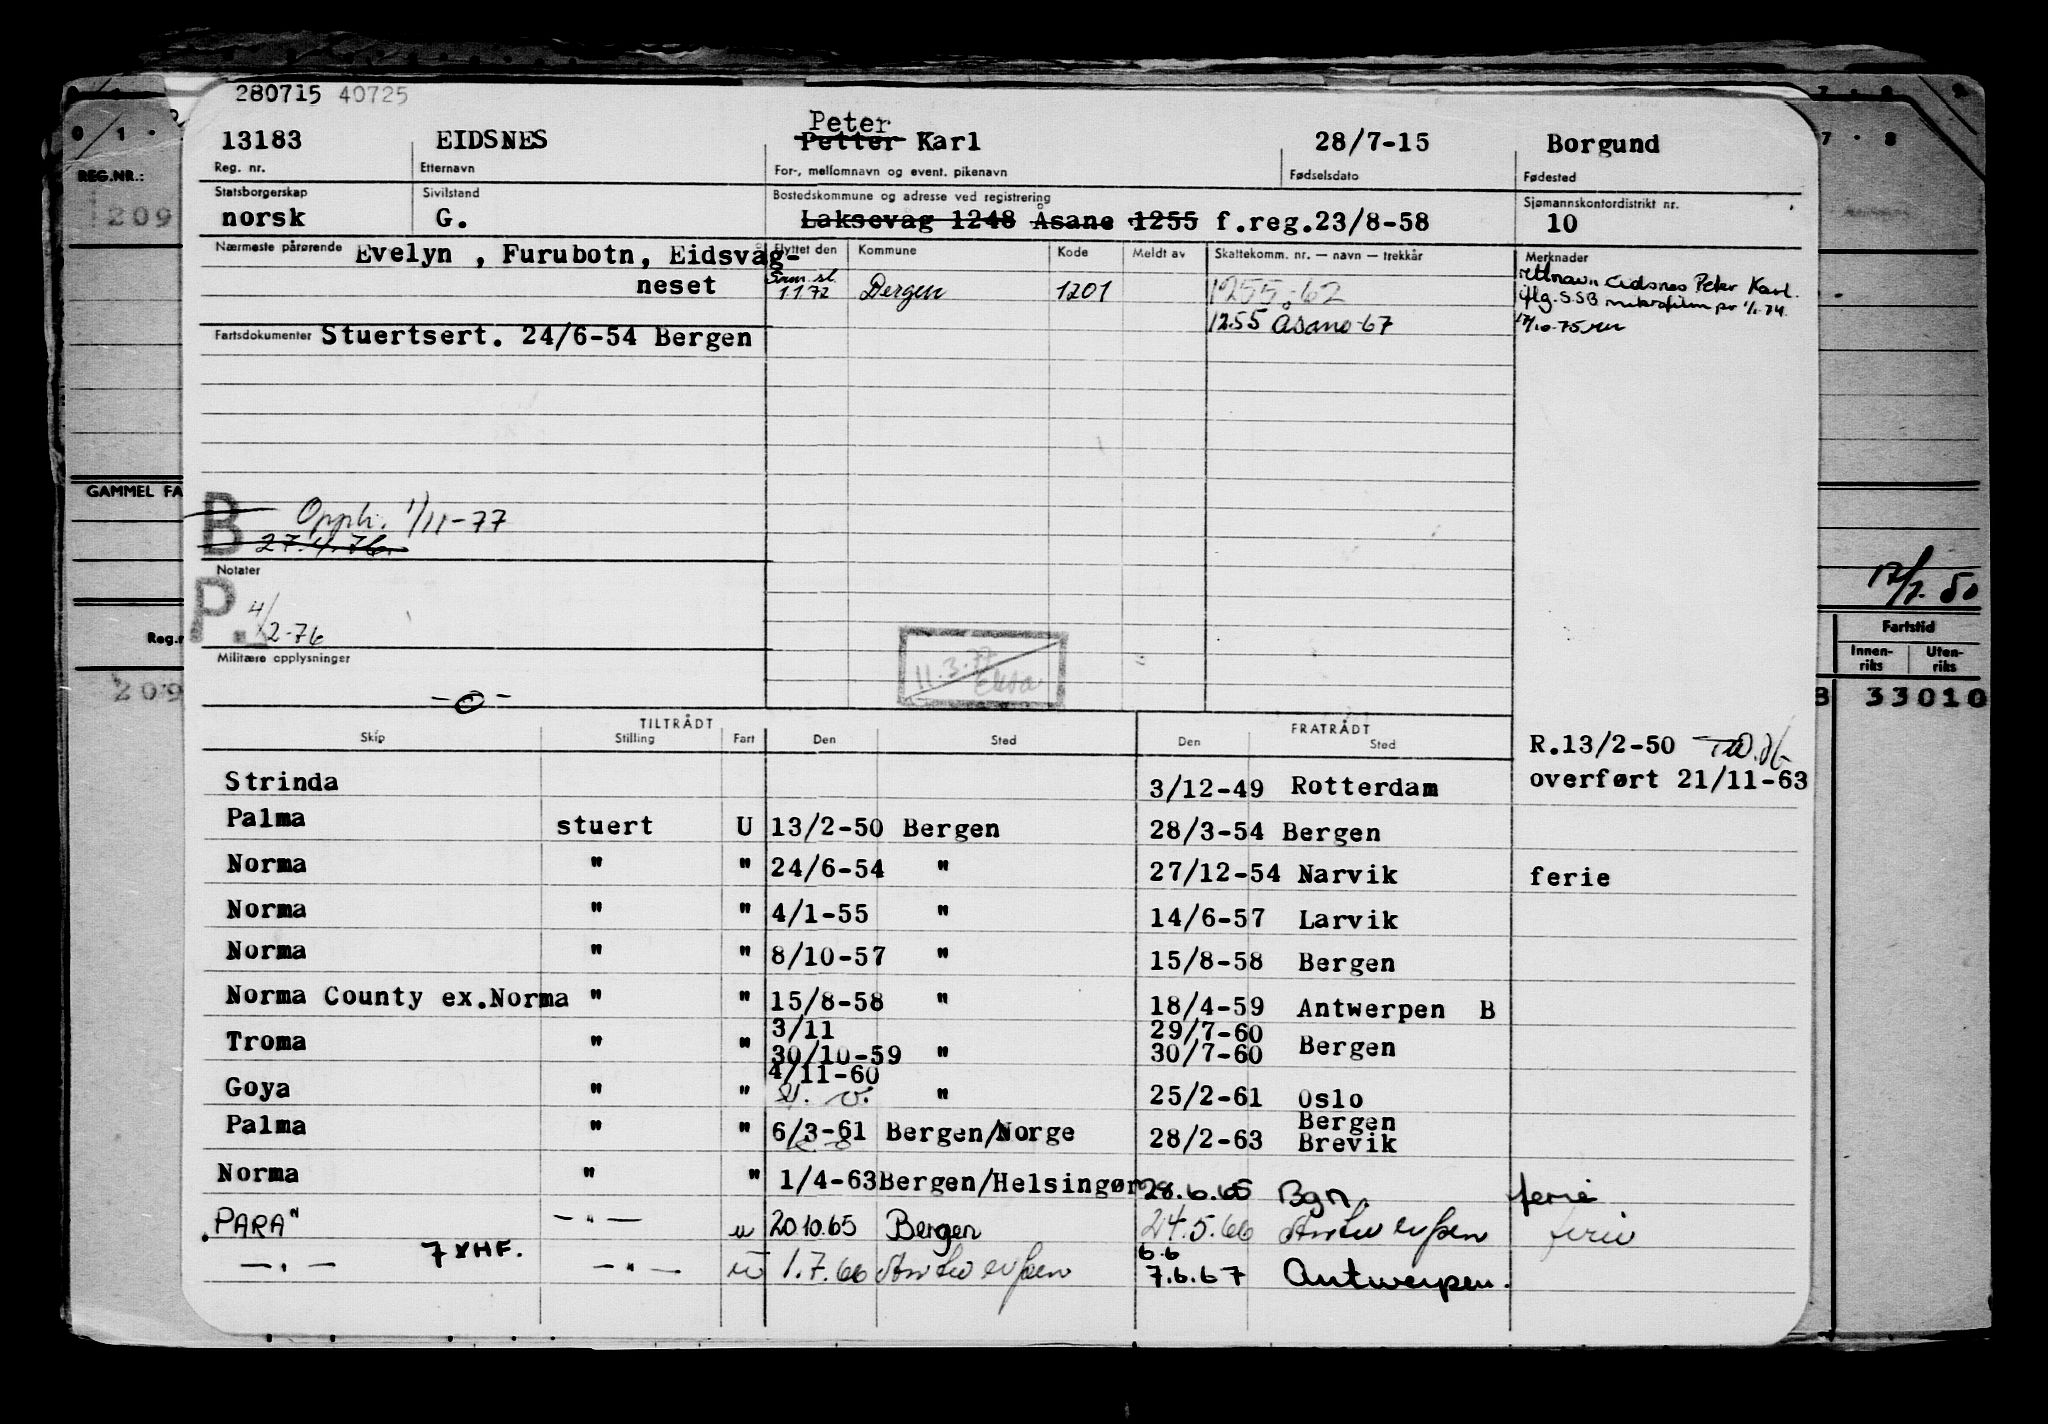 280715 40725
Peter
13183 EIDSNES Petter Karl 28/7-15 Borgund
Reg. nr. Etternavn For-, mellomnavn og event. pikenavn Fødselsdato Fødested
Statsborgerskap Sivilstand Bostedskommune og adresse ved registrering Sjømannskontordistrikt nr.
norsk G. Laksevåg 1248 Åsane 1255 f.reg.23/8-58 10
Nærmeste pårørende Evelyn , Furubotn, Eidsvåg-
neset
Flyttet den Kommune Kode Meldt av Skattekomm. nr. — navn — trekkår Merknader
Sam.sl.
1172 Bergen 1201 1255-62
1255 Åsane-67
rettnavn Eidsnes Peter Karl.
iflg. SSB mikrofilm pr 1/1-74.
17/10-75
Fartsdokumenter Stuertsert. 24/6-54 Bergen
B Opph. 1/11-77
27.4.76
Notater
P. 4/2-76
Militære opplysninger
-0-
11.3.77
TILTRÅDT FRATRÅDT
Skip Stilling Fart Den Sted Den Sted
R.13/2-50
overført 21/11-63
Strinda 3/12-49 Rotterdam
Palma stuert U 13/2-50 Bergen 28/3-54 Bergen
Norma " " 24/6-54 " 27/12-54 Narvik ferie
Norma " " 4/1-55 " 14/6-57 Larvik
Norma " " 8/10-57 " 15/8-58 Bergen
Norma County ex.Norma " " 15/8-58 " 18/4-59 Antwerpen B
3/11 29/7-60
Troma " " 30/10-59 " 30/7-60 Bergen
4/11-60
Goya " " " 25/2-61 Oslo
Bergen
Palma " " 6/3-61 Bergen/Norge 28/2-63 Brevik
Norma " " 1/4-63 Bergen/Helsingør 28.6.65 Bgn. ferie
"PARA" —"— u 20.10.65 Bergen 24.5.66 Antwerpen ferie
6.6
—"— 7 XHF. —"— u 1.7.66 Antwerpen 7.6.67 Antwerpen.
REG.NR.:
209
GAMMEL FA
Reg.n
209
17/7.50
Fartstid
Innen-
riks
Uten-
riks
33010